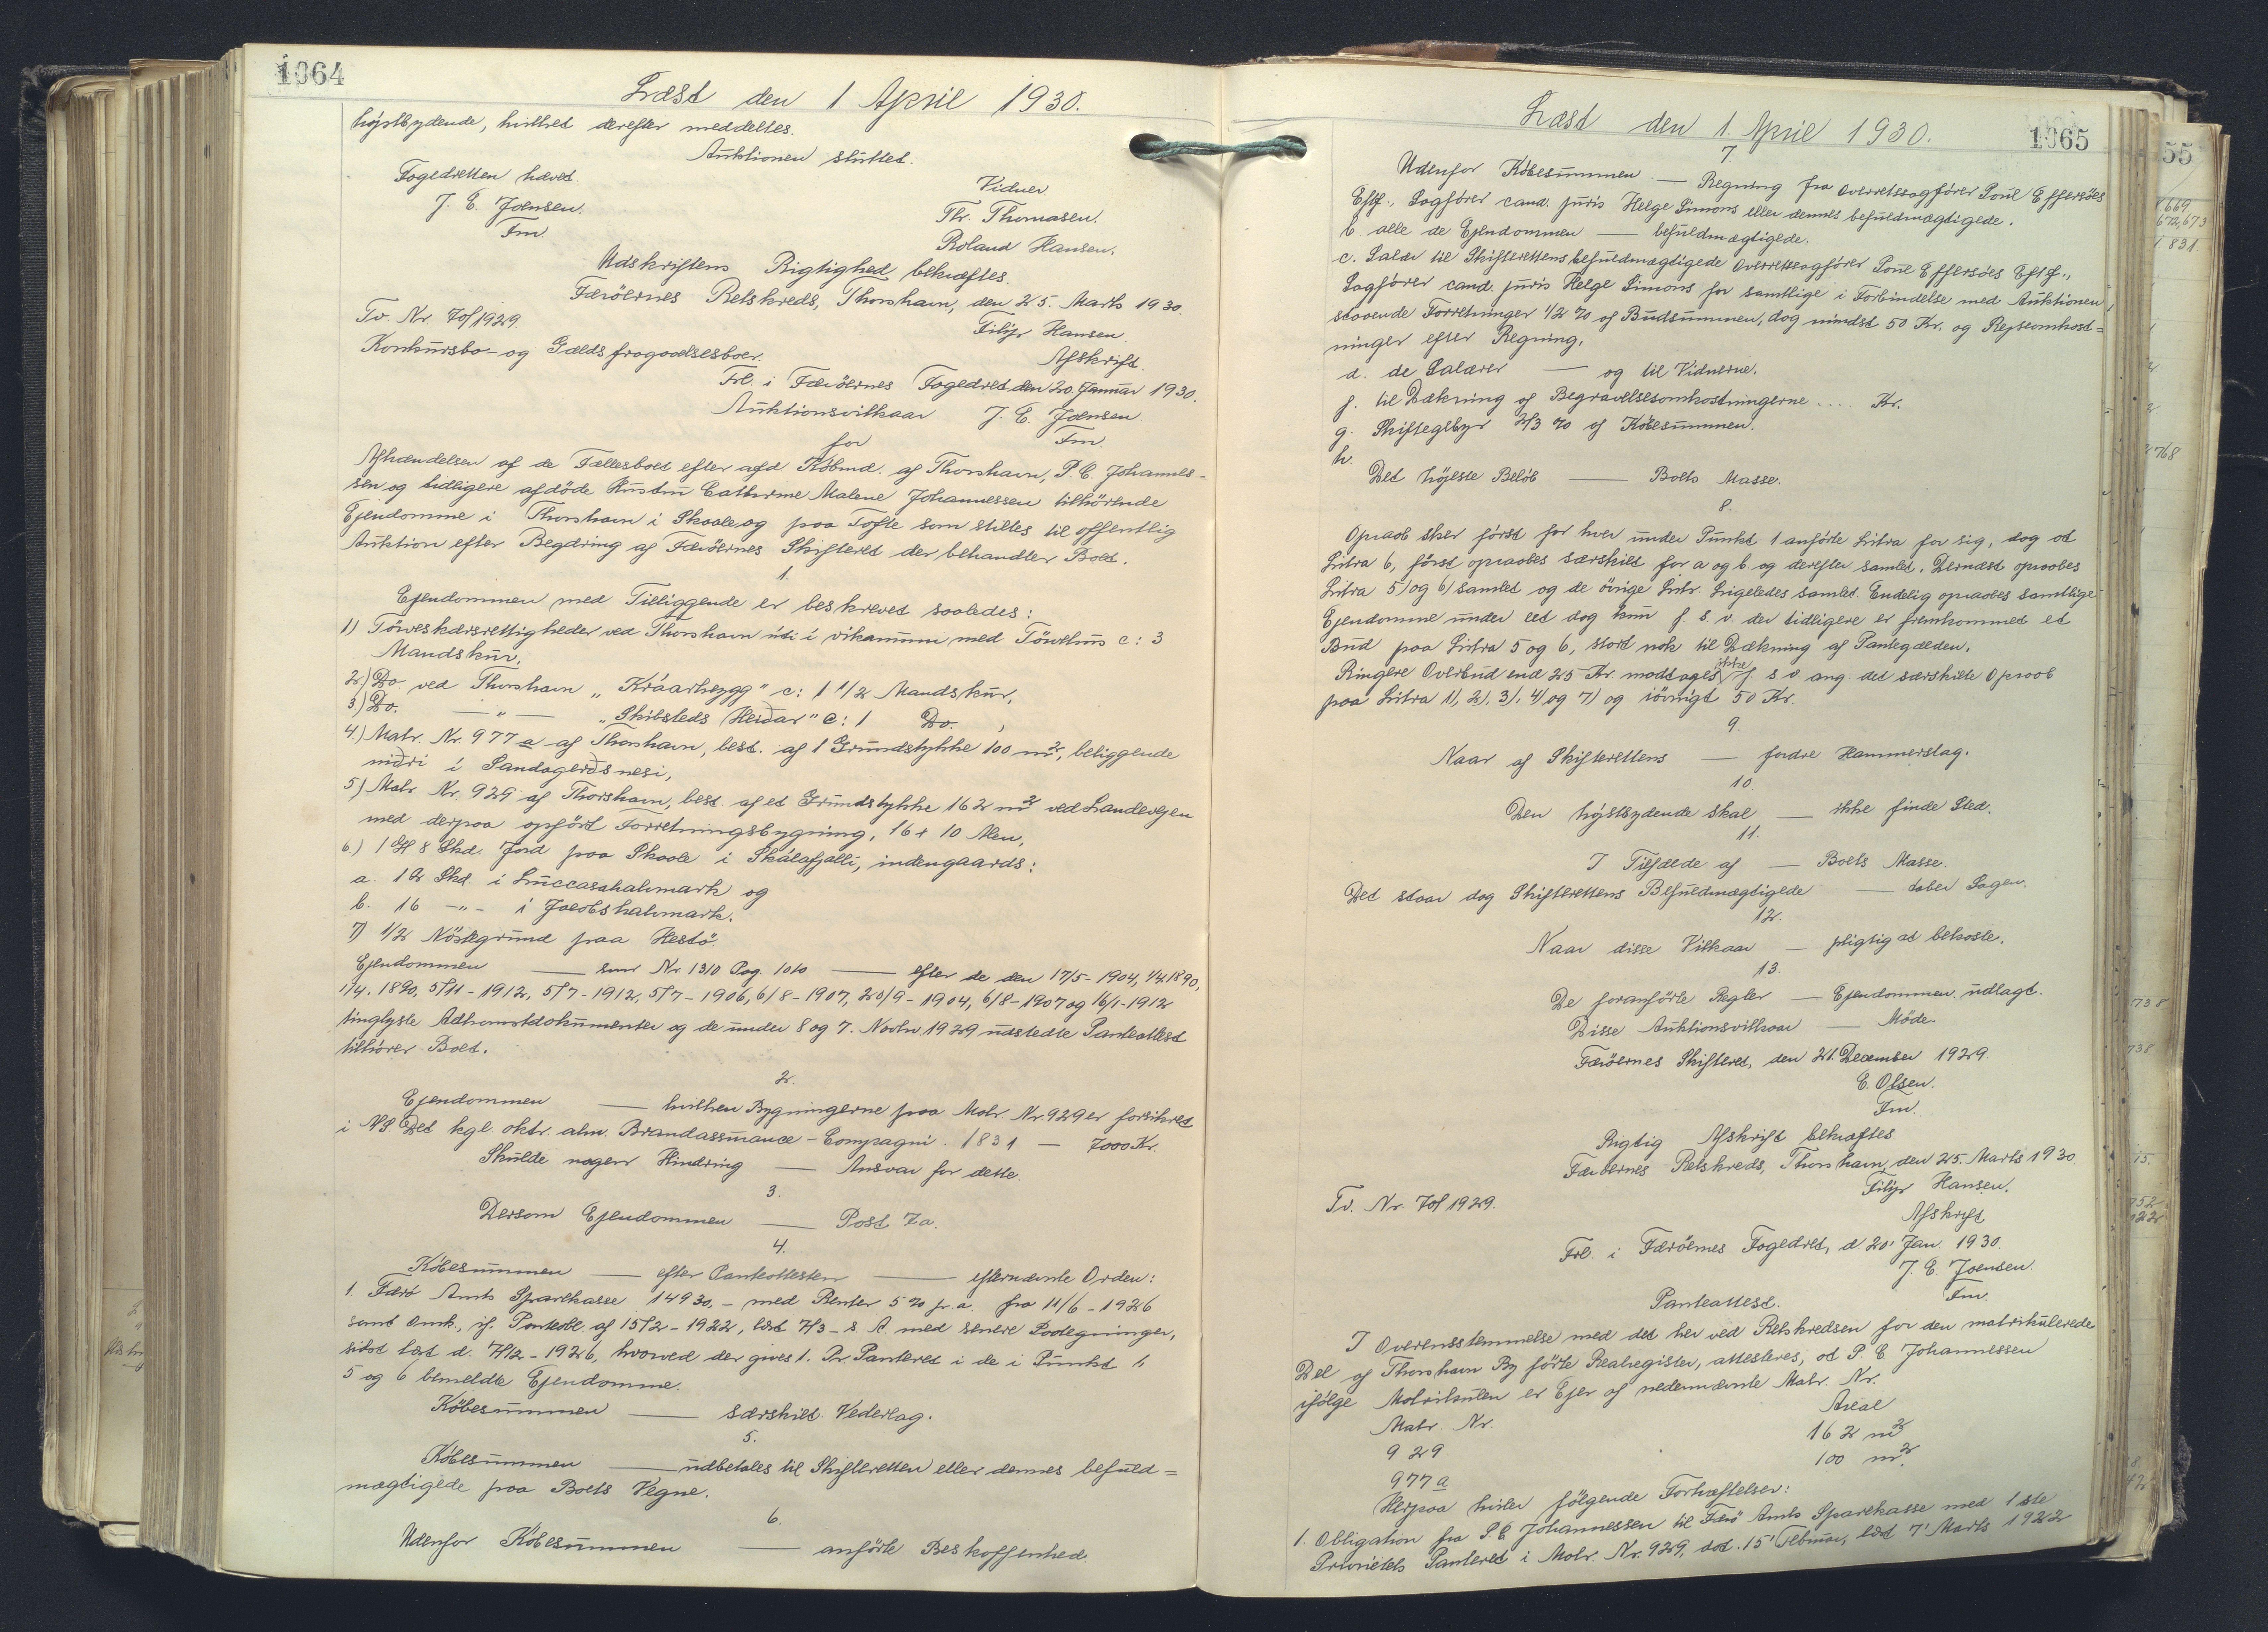 1064
Læst den 1 April 1930.
højstbydende, hvilket derefter meddeltes.
Auktionen sluttet.
Fogedretten hævet.
J. E. Joensen.
Fm.
Vidner
Thr. Thomasen.
Roland Hansen.
Udskriftens Rigtighed bekræftes.
Færöernes Retskreds, Thorshavn, den 25. Marts 1930.
Filip Hansen.
Tv. Nr. 7 of 1929.
Konkursbo- og Gælds fragaaelsesboer.
Afskrift.
Frl. i Færöernes Fogedret den 20 Januar 1930.
Auktionsvilkaar J. E. Joensen.
for Fm.
Afhændelsen af de Fællesboet efter afd Købmd. af Thorshavn, P. C. Johannes-
sen og tidligere afdöde Hustru Cathrine Malene Johannessen tilhörende
Ejendomme i Thorshavn i Skaale og paa Tofte som stilles til offentlig
Auktion efter Begæring af Færöernes Skifteret der behandler Boet.
1.
Ejendommen med Tilliggende er beskrevet saaledes:
1) Törveskærsrettigheder ved Thorshavn úti í víkunum med Törvehus c: 3
Mandskur,
2.) Do. ved Thorshavn „Kráarheygg" c: 1 1/2 Mandskur,
3.) Do. — " — „Skibsteds Heiðar" c: 1 Do. ,
4.) Matr. Nr. 977 a af Thorshavn, best. af 1 Grundstykke 100 m², beliggende
niðri í Sandagerðsnesi,
5) Matr. Nr. 929 af Thorshavn, best. af et Grundstykke 162 m² ved Landevejen
med derpaa opfört Forretningsbygning, 16 x 10 Alen,
6.) 1 Gl 8 Skd. Jord paa Skaale i Skálafjalli, indengaards:
a. 12 Skd. i Luccasahalmark og
b. 16 -"- i Jacobshalmark.
7) 1/2 Nöstegrund paa Hestö.
Ejendommen — som Nr. 1310 Pag. 1010 — efter de den 17/5-1904, 1/4.1890,
1/4. 1890, 5/11-1912, 5/7-1912, 5/7-1906, 6/8-1907, 20/9-1904, 6/8-1907 og 16/1-1912
tinglyste Adkomstdokumenter og de under 8 og 7. Novbr 1929 udstedte Panteattest
tilhörer Boet.
2.
Ejendommen — hvilken Bygningerne paa Matr. Nr. 929 er forsikret
i NS. Det kgl. oktr. alm. Brandassurance-Compagni. 1831 — 7000 Kr.
Skulde nogen Hindring — Ansvar for dette.
3.
Dersom Ejendommen — Post 7a.
4.
Köbesummen — efter Panteattesten — efternævnte Orden:
1. Færö Amts Sparekasse 14930.- med Renter 5 % p. a. fra 11/6-1926
samt Omk., if. Panteobl. af 15/2-1922, læst 7/3-s. A. med senere Paategninger,
sidst læst d. 7/12-1926, hvorved der gives 1. Pr. Panteret i de i Punkt 1,
5 og 6 bemeldte Ejendomme.
Köbesummen — særskilt Vederlag.
5.
Köbesummen — udbetales til Skifteretten eller dennes befuld=
mægtigede paa Boets Vegne.
6.
Udenfor Köbesummen — anförte Beskaffenhed.
1065
Læst den 1. April 1930.
7
Udenfor Köbesummen — Regning fra Overretssagförer Poul Effersöes
Eftf., Sagförer cand. juris Helge Simons eller dennes befuldmægtigede.
b. alle de Ejendommen — befuldmægtigede.
c. Salær til Skifterettens befuldmægtigede Overretssagförer Poul Effersöes Eftf.,
Sagförer cand. juris Helge Simons for samtlige i Forbindelse med Auktionen
staaende Forretninger 1/2 % af Budsummen, dog mindst 50 Kr. og Rejseomkost=
ninger efter Regning,
d. de Salærer — og til Vidnerne.
f. til Dækning af Begravelsesomkostningerne .... Kr.
g. Skiftegebyr 2/3 % af Köbesummen.
h.
Det höjeste Beløb — Boets Masse.
8.
Opraab sker först for hver under Punkt 1 anförte Litra for sig, dog at
Litra 6, först opraabes særskilt for a og b og derefter samlet. Dernæst opraabes
Litra 5) og 6) samlet og de övrige Litr. ligeledes samlet. Endelig opraabes samtlige
Ejendomme under eet dog kun f. s. v. der tidligere er fremkommet et
Bud paa Litra 5 og 6, stort nok til Dækning af Pantegælden.
Ringere Overbud end 25 Kr. modtages ikke f. s. v. ang. det særskilte Opraab
paa Litra 1), 2), 3), 4) og 7) og iövrigt 50 Kr.
9.
Naar af Skifterettens — fordre Hammerslag.
10.
Den höjstbydende skal — ikke finde Sted.
11.
I Tilfælde af — Boets Masse.
Det staar dog Skifterettens Befuldmægtigede — taber Sagen.
12.
Naar disse Vilkaar — pligtig at bekoste.
13.
De foranförte Regler — Ejendommen udlagt.
Disse Auktionsvilkaar — Möde.
Færöernes Skifteret, den 21. December 1929.
E. Olsen.
Fm.
Rigtig Afskrift bekræftes
Færöernes Retskreds, Thorshavn, den 25. Marts 1930.
Filip Hansen.
Tv. Nr. 7 of 1929.
Afskrift
Frl. i Færöernes Fogedret, d 20' Jan. 1930.
J. E. Joensen.
Fm.
Panteattest.
I Overensstemmelse med det her ved Retskredsen for den matrikulerede
Del af Thorshavn By förte Realregister, attesteres, at P. C. Johannessen
ifölge Matrikulen er Ejer af nedennævnte Matr. Nr.
Matr. Nr. Areal
929 162 m²
977 a 100 m².
Herpaa hviler fölgende Forhæftelser:
1. Obligation fra P. C. Johannessen til Færö Amts Sparekasse med 1ste
Prioritets Panteret i Matr. Nr. 929, dat. 15' Februar, læst 7' Marts 1922